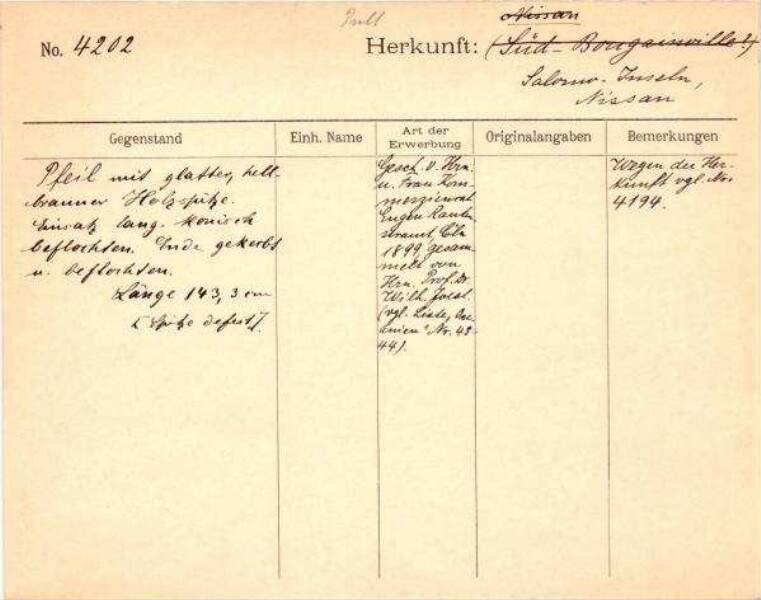 Nissan
No. 4202
Herkunft: (Süd-Bougainville?)
Salomo-Inseln,
Nissan
Gegenstand
Einh. Name
Art der
Erwerbung
Originalangaben
Bemerkungen
Pfeil mit glatter, hell-
brauner Holzspitze.
Einsatz lang-konisch
beflochten. Ende gekerbt
u. beflochten.
Länge 143,3 cm
[Spitze defect]
Gesch. v. Hrn.
u. Frau Kom-
merzienrat
Eugen Rauten-
strauch, Cöln
1899, gesam-
melt von
Hrn. Prof. Dr.
Wilh. Joest.
(vgl. Liste „Oce-
anien" Nr. 43-
44).
Wegen der Her-
kunft vgl. No.
4194.